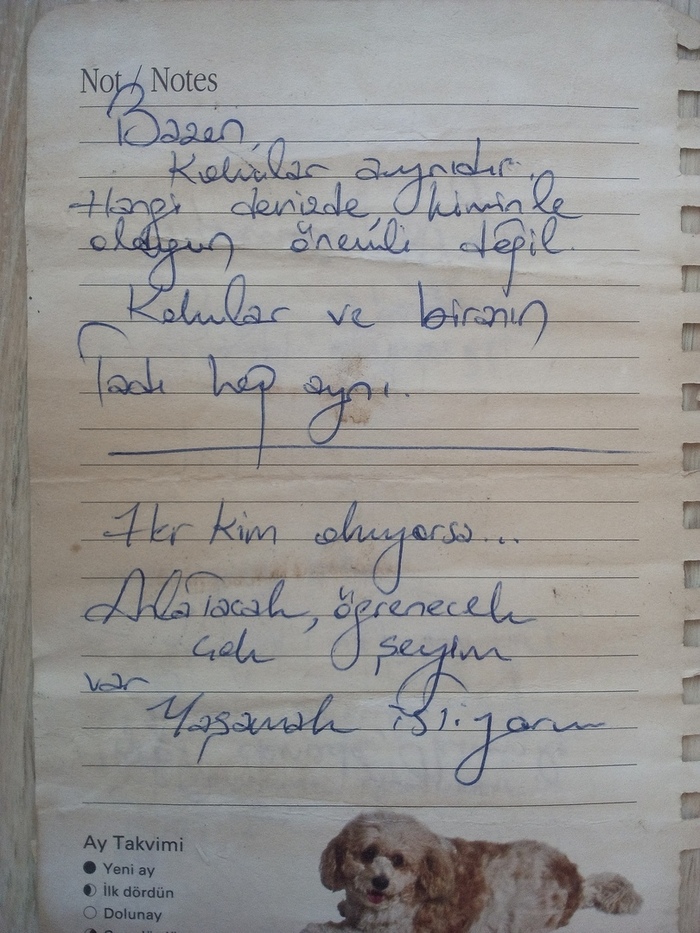 Not / Notes
Bazen,
Kokular aynıdır.
Hangi denizde kiminle
olduğun önemli değil.
Kokular ve biranın
Tadı hep aynı.
Her kim okuyorsa...
Anlatacak, öğrenecek
çok şeyim
var
Yaşamak istiyorum
Ay Takvimi
Yeni ay
İlk dördün
Dolunay